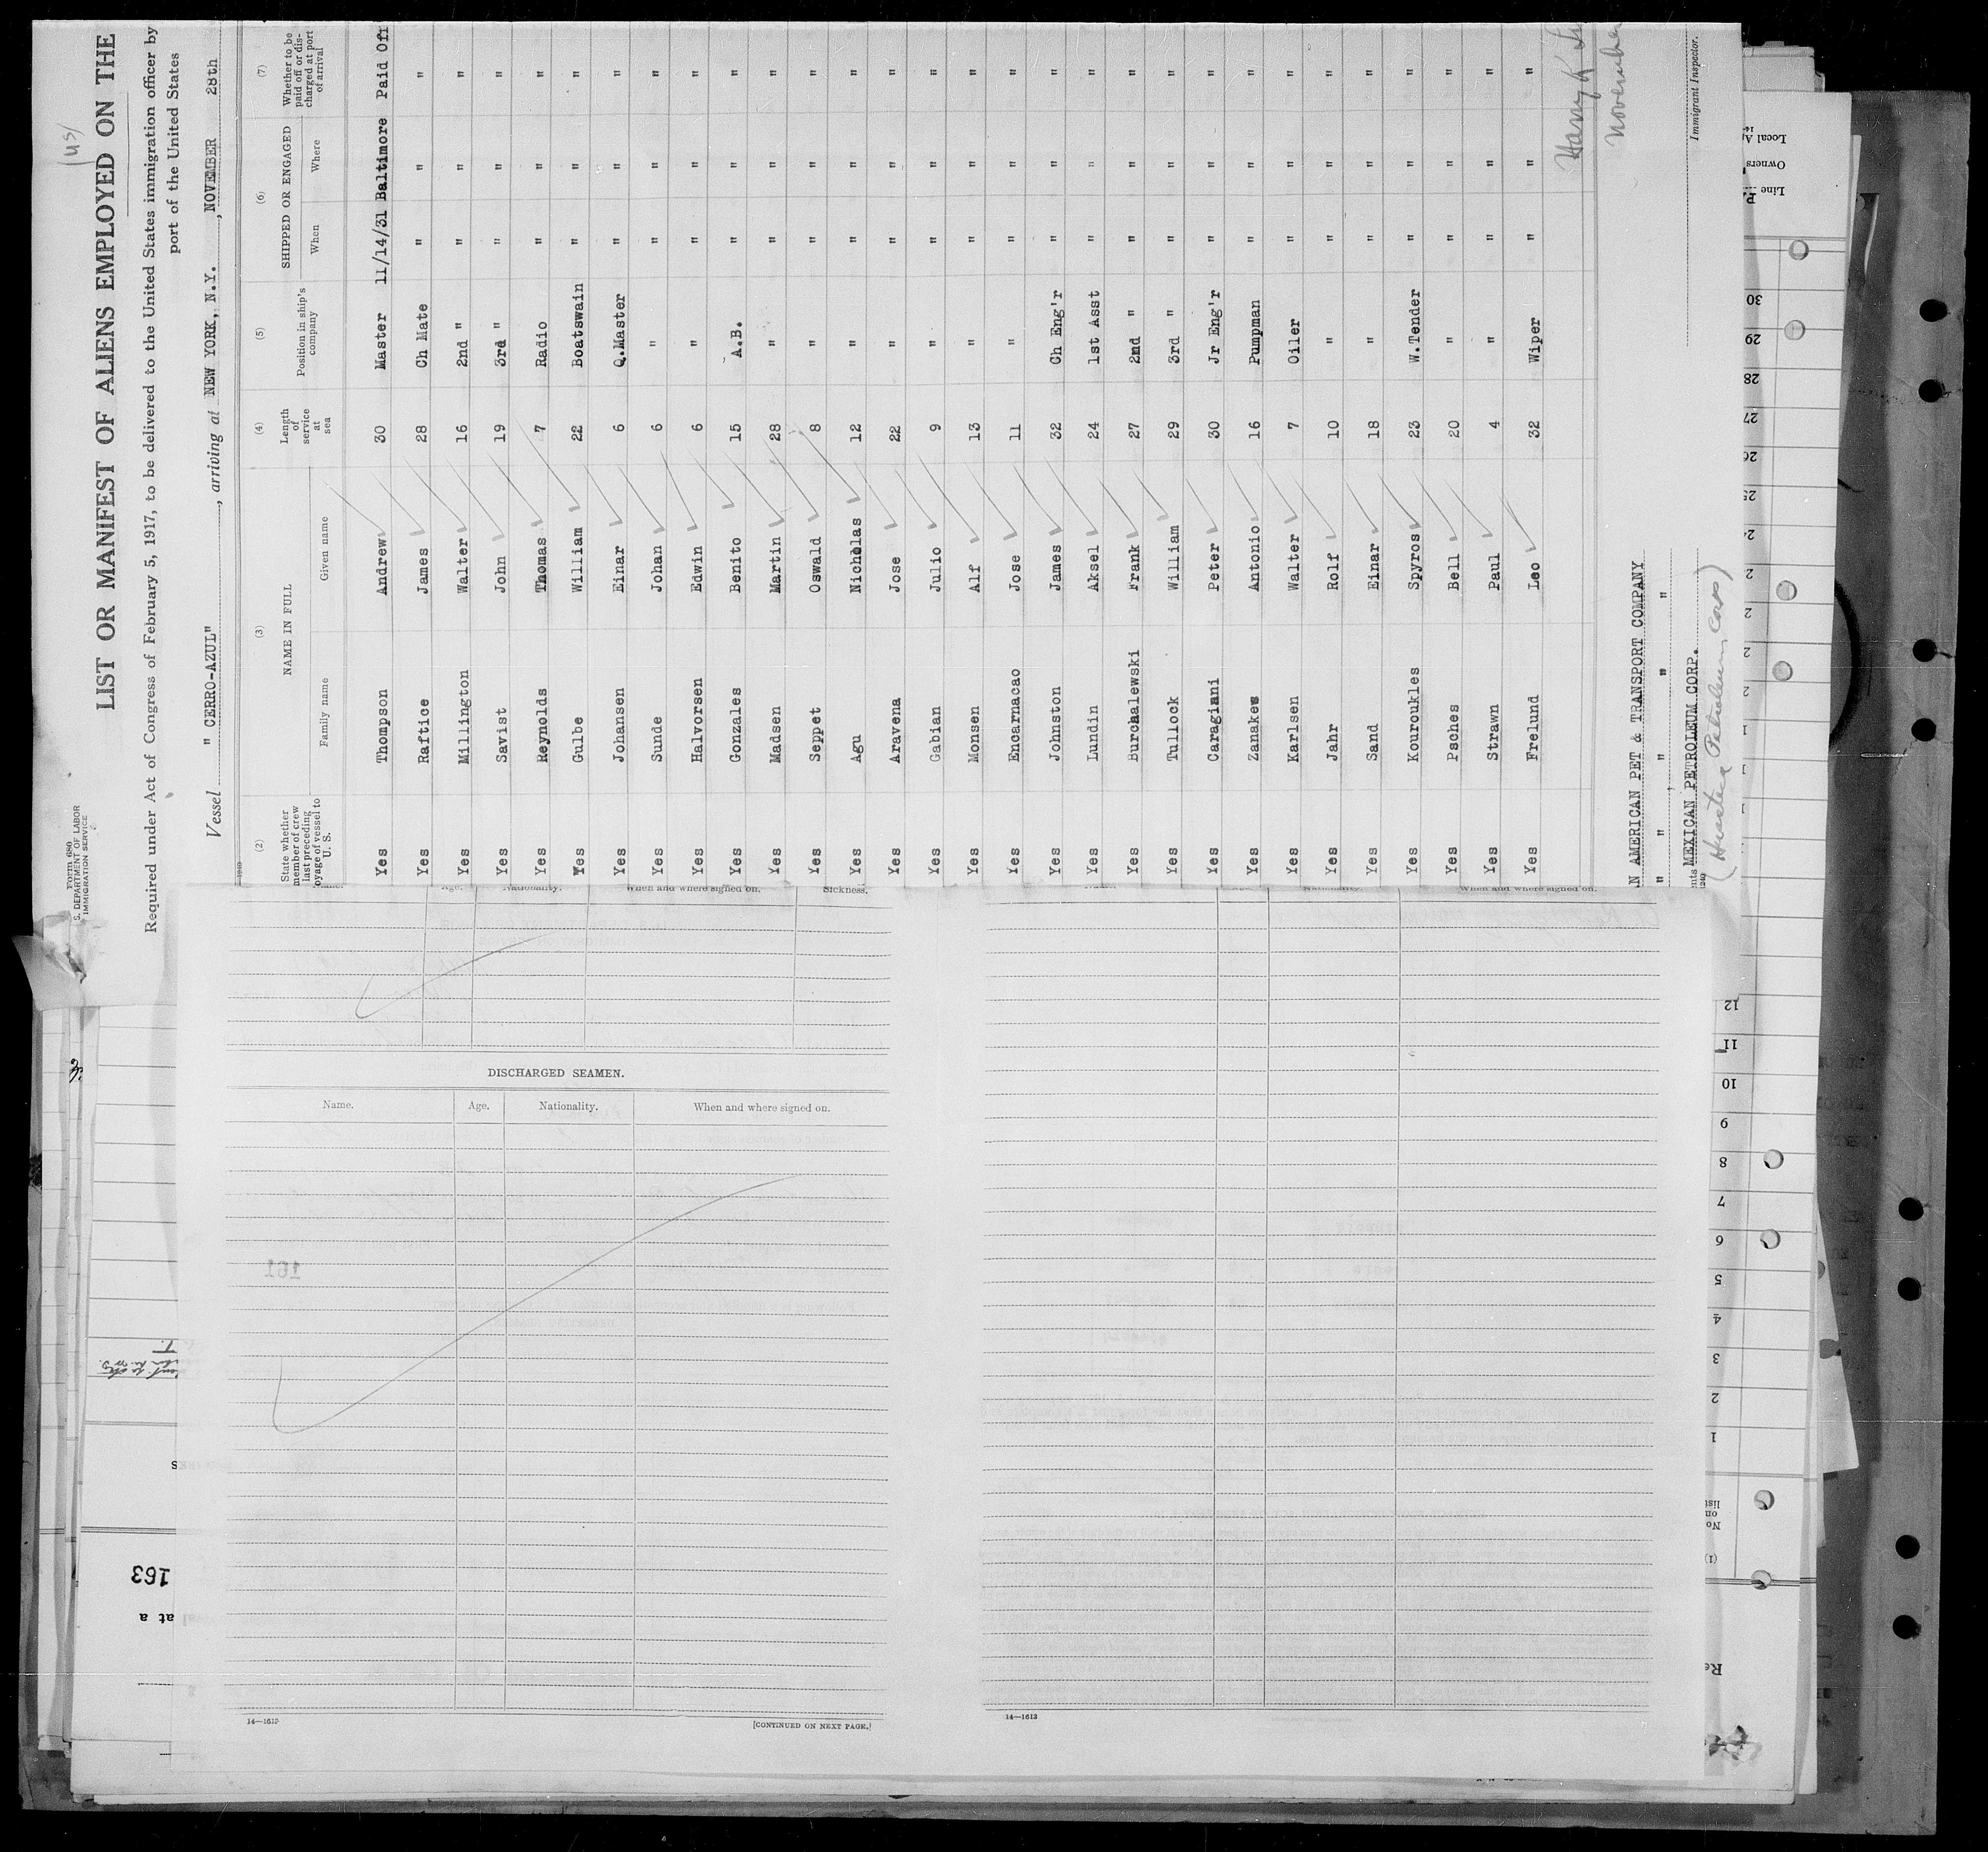 Form 680
S. DEPARTMENT OF LABOR
IMMIGRATION SERVICE
LIST OR MANIFEST OF ALIENS EMPLOYED ON THE
Required under Act of Congress of February 5, 1917, to be delivered to the United States immigration officer by
port of the United States
Vessel " CERRO-AZUL" , arriving at NEW YORK, N.Y. , NOVEMBER 28th
(2) (3) (4) (5) (6) (7)
State whether member of crew last preceding voyage of vessel to U. S. NAME IN FULL Family name Given name Length of service at sea Position in ship's company SHIPPED OR ENGAGED When Where Whether to be paid off or discharged at port of arrival
Yes Thompson Andrew 30 Master 11/14/31 Baltimore Paid Off
Yes Raftice James 28 Ch Mate " " "
Yes Millington Walter 16 2nd " " " "
Yes Savist John 19 3rd " " " "
Yes Reynolds Thomas 7 Radio " " "
Yes Gulbe William 22 Boatswain " " "
Yes Johansen Einar 6 Q.Master " " "
Yes Sunde Johan 6 " " " "
Yes Halvorsen Edwin 6 " " " "
Yes Gonzales Benito 15 A.B. " " "
Yes Madsen Martin 28 " " " "
Yes Seppet Oswald 8 " " " "
Yes Agu Nicholas 12 " " " "
Yes Aravena Jose 22 " " " "
Yes Gabian Julio 9 " " " "
Yes Monsen Alf 13 " " " "
Yes Encarnacao Jose 11 " " " "
Yes Johnston James 32 Ch Eng'r " " "
Yes Lundin Aksel 24 1st Asst " " "
Yes Burchalewski Frank 27 2nd " " " "
Yes Tullock William 29 3rd " " " "
Yes Caragiani Peter 30 Jr Eng'r " " "
Yes Zanakes Antonio 16 Pumpman " " "
Yes Karlsen Walter 7 Oiler " " "
Yes Jahr Rolf 10 " " " "
Yes Sand Einar 18 " " " "
Yes Kouroukles Spyros 23 W.Tender " " "
Yes Psches Bell 20 " " " "
Yes Strawn Paul 4 " " " "
Yes Frelund Leo 32 Wiper " " "
Harry K
Immigrant Inspector.
AN AMERICAN PET & TRANSPORT COMPANY
" " " " "
MEXICAN PETROLEUM CORP.
(Huasteca Petroleum Corp)
Age. Nationality. When and where signed on. Sickness.
When and where signed on.
DISCHARGED SEAMEN.
Name. Age. Nationality. When and where signed on.
161
14—1613
[CONTINUED ON NEXT PAGE.]
14—1613
163
at a
Local A
Owners
Line
30
29
28
27
26
25
12
11
10
9
8
7
6
5
4
3
2
1
No. on list
(1)